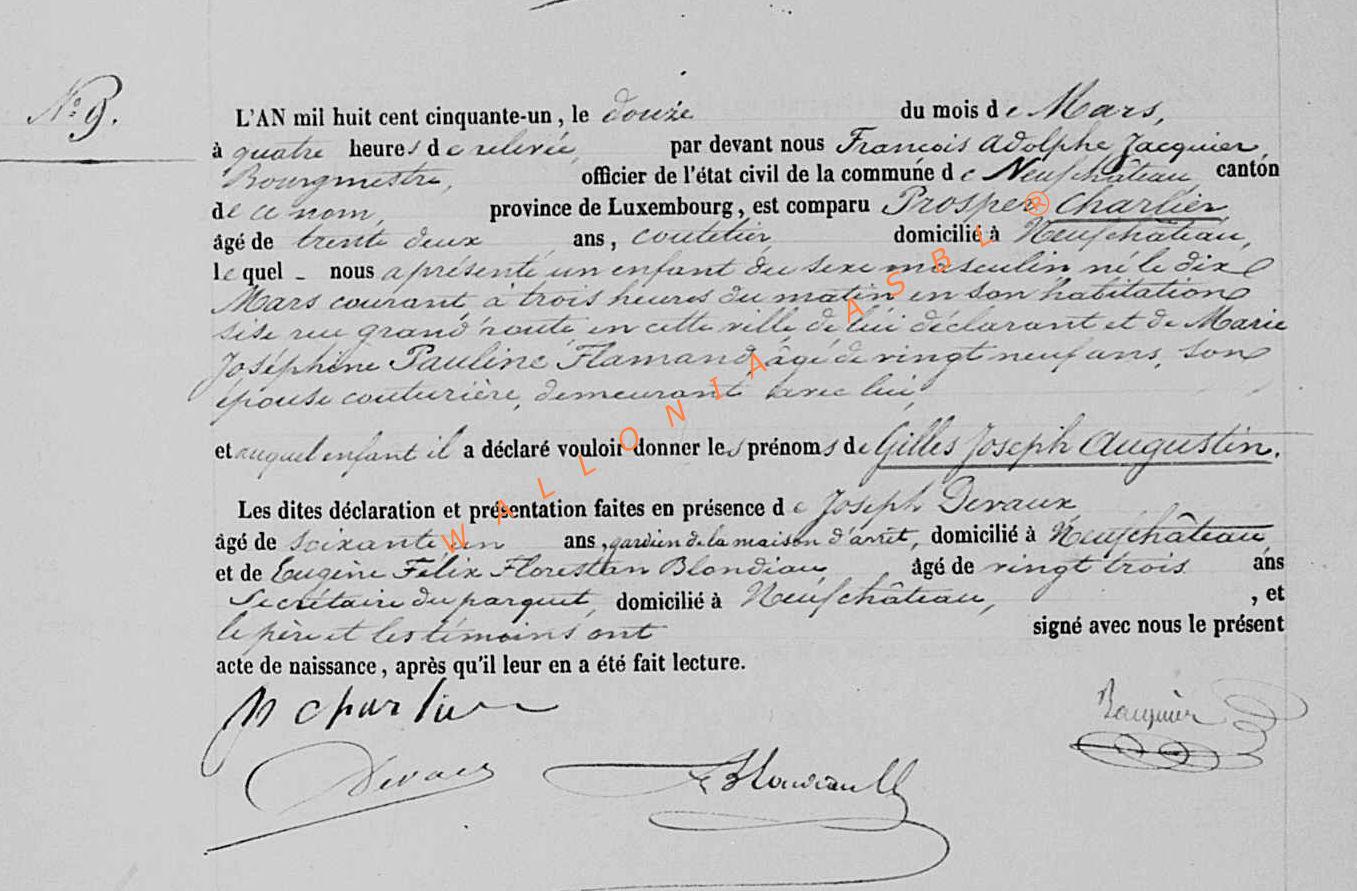 N° 9.
L'AN mil huit cent cinquante-un, le douze du mois de Mars,
à quatre heures de relevée, par devant nous François Adolphe Jacquier,
Bourgmestre, officier de l'état civil de la commune de Neufchâteau, canton
de ce nom, province de Luxembourg, est comparu Prosper Charlier,
âgé de trente deux ans, coutelier, domicilié à Neufchâteau,
lequel - nous a présenté un enfant du sexe masculin né le dix
Mars courant, à trois heures du matin en son habitation
sise rue grand'route, en cette ville, de lui déclarant et de Marie
Joséphine Pauline Flamand, âgé de vingt neuf ans, son
épouse couturière, demeurant avec lui,
et auquel enfant il a déclaré vouloir donner les prénoms de Gilles Joseph Augustin.
Les dites déclaration et présentation faites en présence de Joseph Devaux,
âgé de soixante un ans, gardien de la maison d'arrêt, domicilié à Neufchâteau,
et de Eugène Félix Florestan Blondiau, âgé de vingt trois ans
Secrétaire du parquet, domicilié à Neufchâteau, , et
le père et les témoins ont signé avec nous le présent
acte de naissance, après qu'il leur en a été fait lecture.
charlier
Jacquier
Devaux
WALLONIA ASBL ®